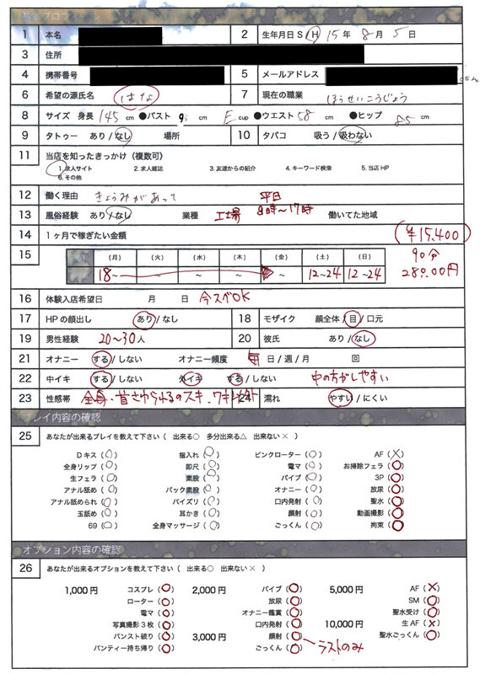 1 本名 2 生年月日 S / H 15年 8月 5日
3 住所
4 携帯番号 5 メールアドレス
6 希望の源氏名 はな 7 現在の職業 ほうせいこうじょう
8 サイズ 身長 145cm ●バスト cm Ecup ●ウエスト 58cm ●ヒップ 85cm
9 タトゥー あり / なし 場所 10 タバコ 吸う / 吸わない
11 当店を知ったきっかけ(複数可)
1.求人サイト 2.求人雑誌 3.友達からの紹介 4.キーワード検索 5.当店HP
6.その他
12 働く理由 きょうみがあって 平日
13 風俗経験 あり / なし 業種 工場 8時〜17時 働いてた地域
14 1ヶ月で稼ぎたい金額 ¥15,400
90分
15 (月) (火) (水) (木) (金) (土) (日)
18〜 〜 〜 〜 12〜24 12〜24
16 体験入店希望日 月 日 今スグOK
17 HPの顔出し あり / なし 18 モザイク 顔全体 / 目 / 口元
19 男性経験 20〜30人 20 彼氏 あり / なし
21 オナニー する / しない オナニー頻度 毎日 / 週 / 月 回
22 中イキ する / しない 外イキ する / しない 中の方がしやすい
23 性感帯 全身・首さわられるのスキ 24 濡れ やすい / にくい
プレイ内容の確認
25 あなたが出来るプレイを教えて下さい(出来る○ 多分出来る△ 出来ない×)
Dキス(○) 指入れ(○) ピンクローター(○) AF(×)
全身リップ(○) 即尺(○) 電マ(○) お掃除フェラ(○)
生フェラ(○) 素股(○) バイブ(○) 3P(○)
アナル舐め(○) バック素股(○) オナニー(○) 放尿(○)
アナル舐められ(○) パイズリ(○) 口内発射(○) 聖水(○)
玉舐め(○) 耳かき(○) 顔射(○) 動画撮影(○)
69(○) 全身マッサージ(○) ごっくん(○) 拘束(○)
オプション内容の確認
26 あなたが出来るオプションを教えて下さい(出来る○ 出来ない×)
1,000円 コスプレ(○) 2,000円 バイブ(○) 5,000円 AF(×)
ローター(○) 放尿(○) SM(○)
電マ(○) オナニー鑑賞(○) 聖水受け(○)
写真撮影3枚(○) 口内発射(○) 10,000円 生AF(×)
パンスト破り(○) 3,000円 顔射(○) 聖水ごっくん(○)
パンティー持ち帰り(○) ごっくん(○) ラストのみ